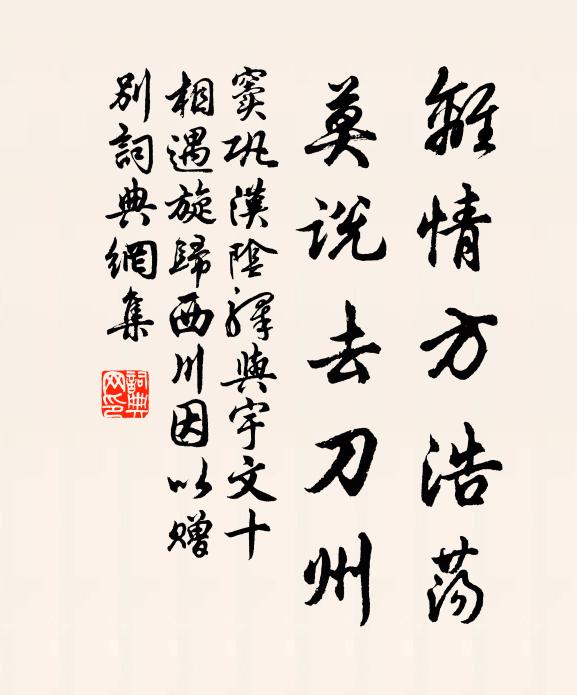 離情方浩蕩
莫説去刀州
竇巩漢陰驛與宇文十
相遇旋歸西川因以贈
別詞典網集
詞典
网印